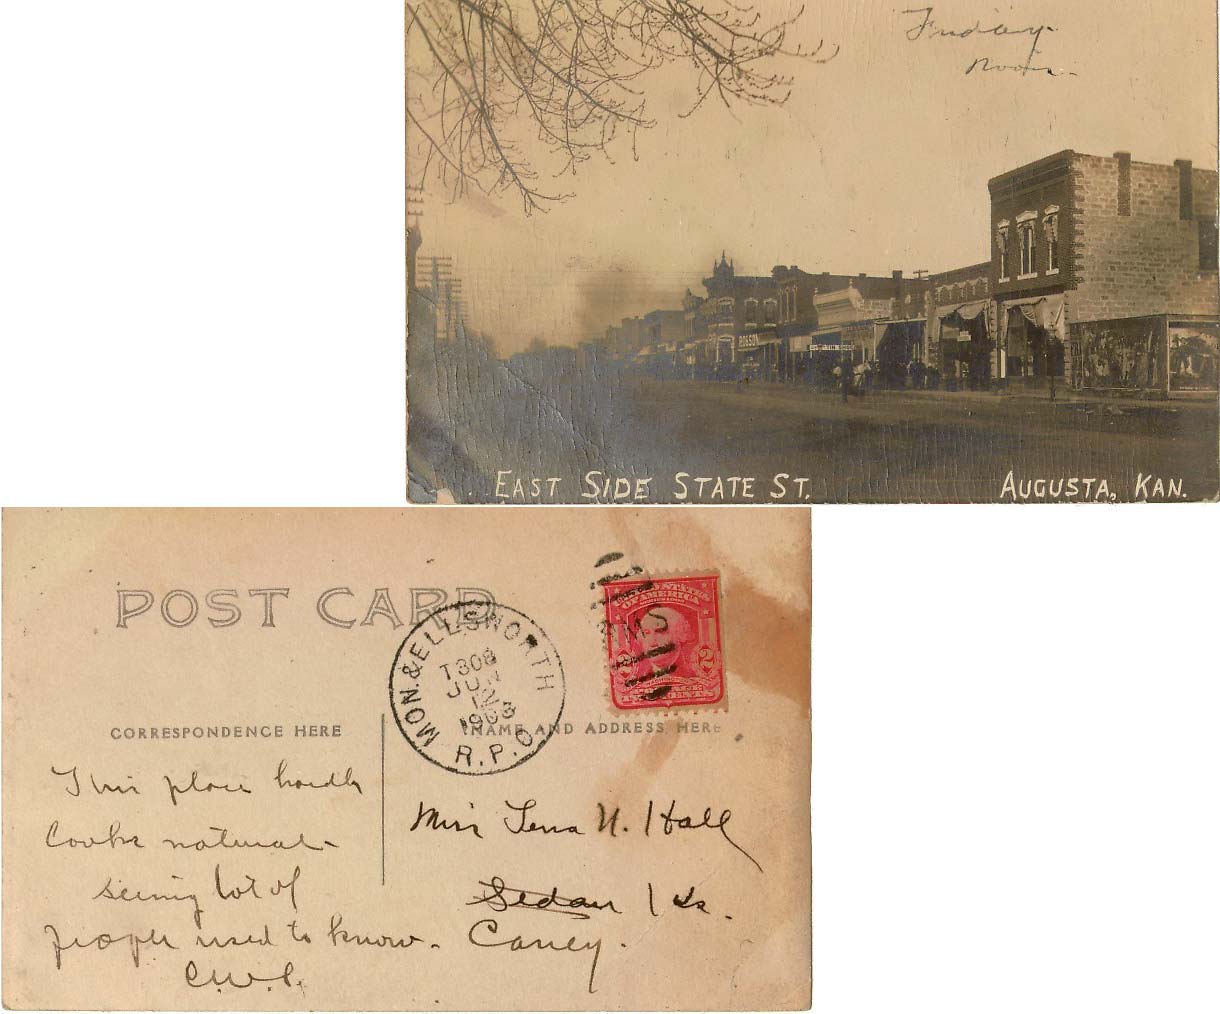 Friday
Noon.
ROBSON
EAST SIDE STATE ST.
AUGUSTA, KAN.
POST CARD
MON. & ELLSWORTH
T308
JUN
12
1908
R.P.O.
RMS
UNITED STATES
OF AMERICA
SERIES 1902
2 2
TWO CENTS
CORRESPONDENCE HERE
NAME AND ADDRESS HERE
This place hardly
looks natural-
seeing lot of
people used to know.
C.W.P.
Miss Lena N. Hall
Sedan Ks.
Caney.